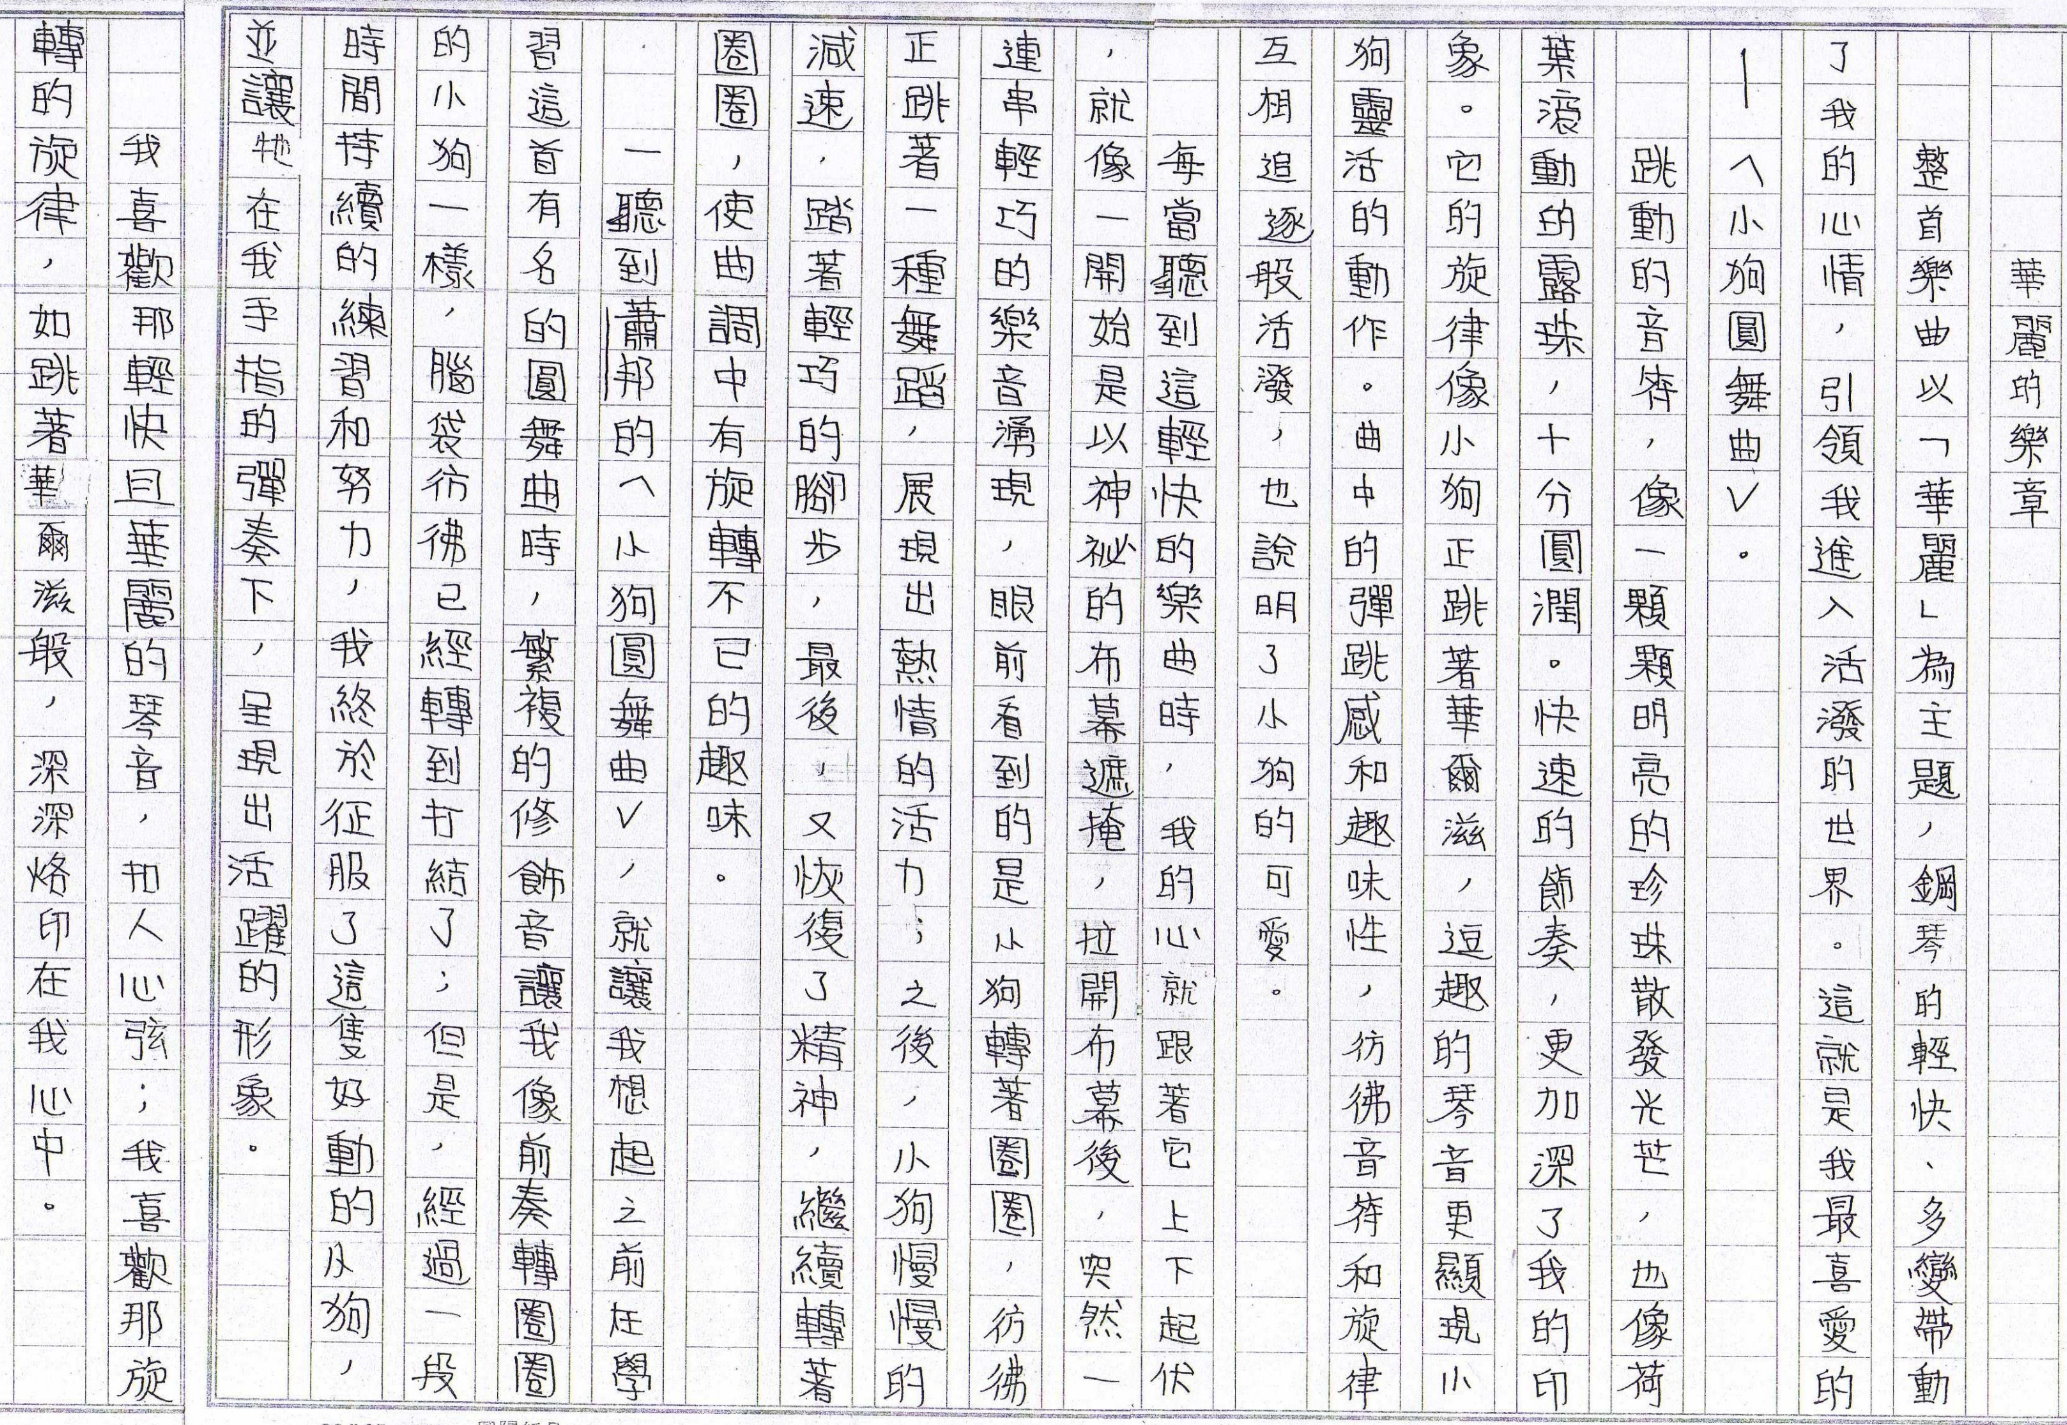 華麗的樂章
整首樂曲以「華麗」為主題，鋼琴的輕快、多變帶動
了我的心情，引領我進入活潑的世界。這就是我最喜愛的
—〈小狗圓舞曲〉。
跳動的音符，像一顆顆明亮的珍珠散發光芒，也像荷
葉滾動的露珠，十分圓潤。快速的節奏，更加深了我的印
象。它的旋律像小狗正跳著華爾滋，逗趣的琴音更顯現小
狗靈活的動作。曲中的彈跳感和趣味性，彷彿音符和旋律
互相追逐般活潑，也說明了小狗的可愛。
每當聽到這輕快的樂曲時，我的心就跟著它上下起伏
，就像一開始是以神祕的布幕遮掩，拉開布幕後，突然一
連串輕巧的樂音湧現，眼前看到的是小狗轉著圈圈，彷彿
正跳著一種舞蹈，展現出熱情的活力；之後，小狗慢慢的
減速，踏著輕巧的腳步，最後，又恢復了精神，繼續轉著
圈圈，使曲調中有旋轉不已的趣味。
一聽到蕭邦的〈小狗圓舞曲〉，就讓我想起之前在學
習這首有名的圓舞曲時，繁複的修飾音讓我像前奏轉圈圈
的小狗一樣，腦袋彷彿已經轉到打結了；但是，經過一段
時間持續的練習和努力，我終於征服了這隻好動的小狗，
並讓牠在我手指的彈奏下，呈現出活躍的形象。
我喜歡那輕快且華麗的琴音，扣人心弦；我喜歡那旋
轉的旋律，如跳著華爾滋般，深深烙印在我心中。